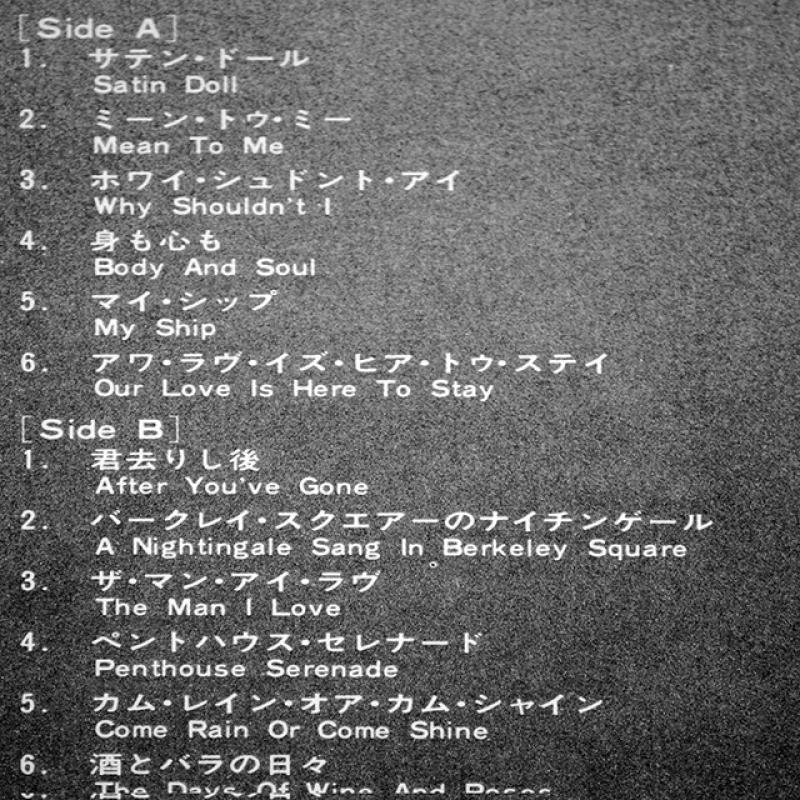 [Side A]
1. サテン・ドール
Satin Doll
2. ミーン・トゥ・ミー
Mean To Me
3. ホワイ・シュドント・アイ
Why Shouldn't I
4. 身も心も
Body And Soul
5. マイ・シップ
My Ship
6. アワ・ラヴ・イズ・ヒア・トゥ・ステイ
Our Love Is Here To Stay
[Side B]
1. 君去りし後
After You've Gone
2. バークレイ・スクエアーのナイチンゲール
A Nightingale Sang In Berkeley Square
3. ザ・マン・アイ・ラヴ
The Man I Love
4. ペントハウス・セレナード
Penthouse Serenade
5. カム・レイン・オア・カム・シャイン
Come Rain Or Come Shine
6. 酒とバラの日々
The Days Of Wine And Roses